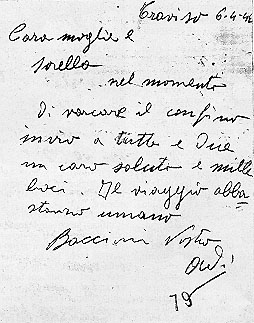 Treviso 6-4-44
Cara moglie e
sorella
nel momento
di varcare il confino
invio a tutte e due
un caro saluto e mille
baci. Il viaggio abba
stanza umano
Baccioni Vostro
79